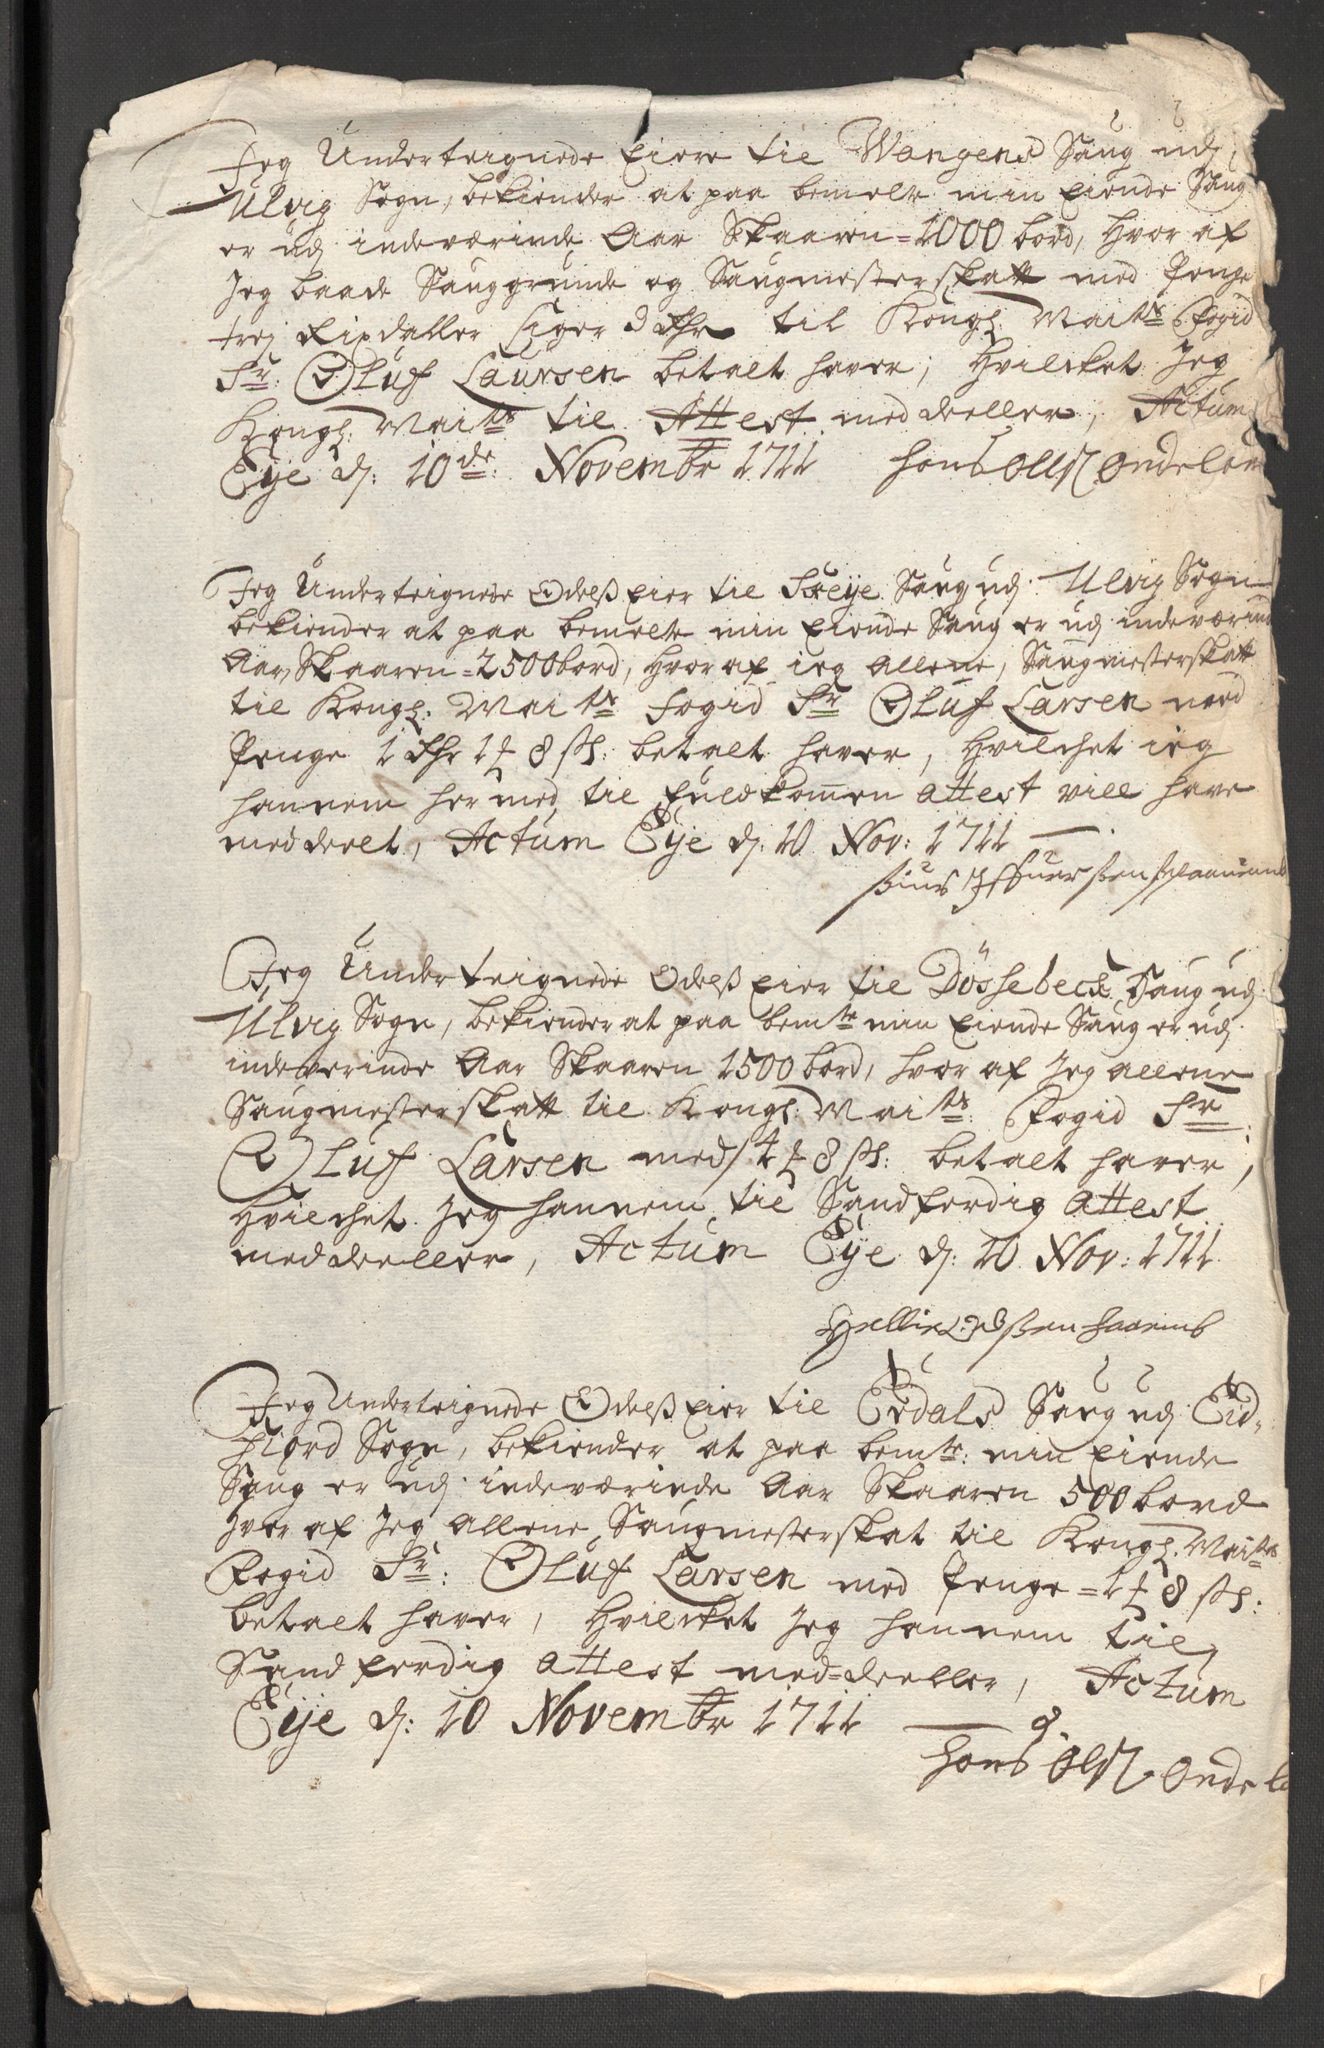 Jeg Underteignede Eiere til Wangens Saug udj
Ulvig Sogn, bekiender at paa bemelte min Eiende Saug
er udj indeværinde Aar Skaaren = 1000 bord, Hvor af
Jeg baade Sauggrunde og Saugmesterskatt med Penge
trej Rixdaller siger 3 Rdr til Kongl: Maits Fogid
Sr: Oluf Laursen betalt haver, Hvilcket Jeg
Kongl: Maits til Attest meddeeller, Actum
Eye d: 10de Novembr 1711 Hans Olls
Jeg Underteignede Odelss Eier til Saug udj Ulvig Sogn
bekiender at paa bemelte min Eiende Saug er udj indeværind
Aar, Skaaren = 2500 bord, Hvor af ieg allene, Saugmesterskatt
til Kongl: Maits fogid Sr Oluf Larsen med
Penge 1 Rdr 1 ₰ 8 sh: betalt haver, Hvilchet ieg
hannem her med til fuldkommen attest vill have
meddeelt, Actum Eye d: 10 Nov: 1711

Jeg Underteignede Odelss Eier til Dössebeck Saug udj
Ulvig Sogn, bekiender at paa bemte min Eiende Saug er udj
indeverinde Aar Skaaren 1500 bord, hvor af Jeg allene
Saugmesterskatt til Kongl: Maits Fogid Sr:
Oluf Larsen med 4 ₰ 8 sh: betalt haver,
Hvilchet Jeg hannem til Sandferdig Attest
meddeeller, Actum Eye d: 10 Nov: 1711

Jeg Underteignede Odelss Eier til Erdals Saug udj Eid-
fiord Sogn, bekiender at paa bemte: min Eiende
Saug er udj indeværinde Aar Skaaren 500 bord
Hvor af Jeg allene Saugmesterskat til Kongl: Maits
Fogid Sr: Oluf Larsen med Penge = 1 ₰ 8 sh:
betalt haver, Hvilcket Jeg hannem til
Sandferdig attest med-deeller, Actum
Eije d: 10 Novembr 1711
Hans Ols